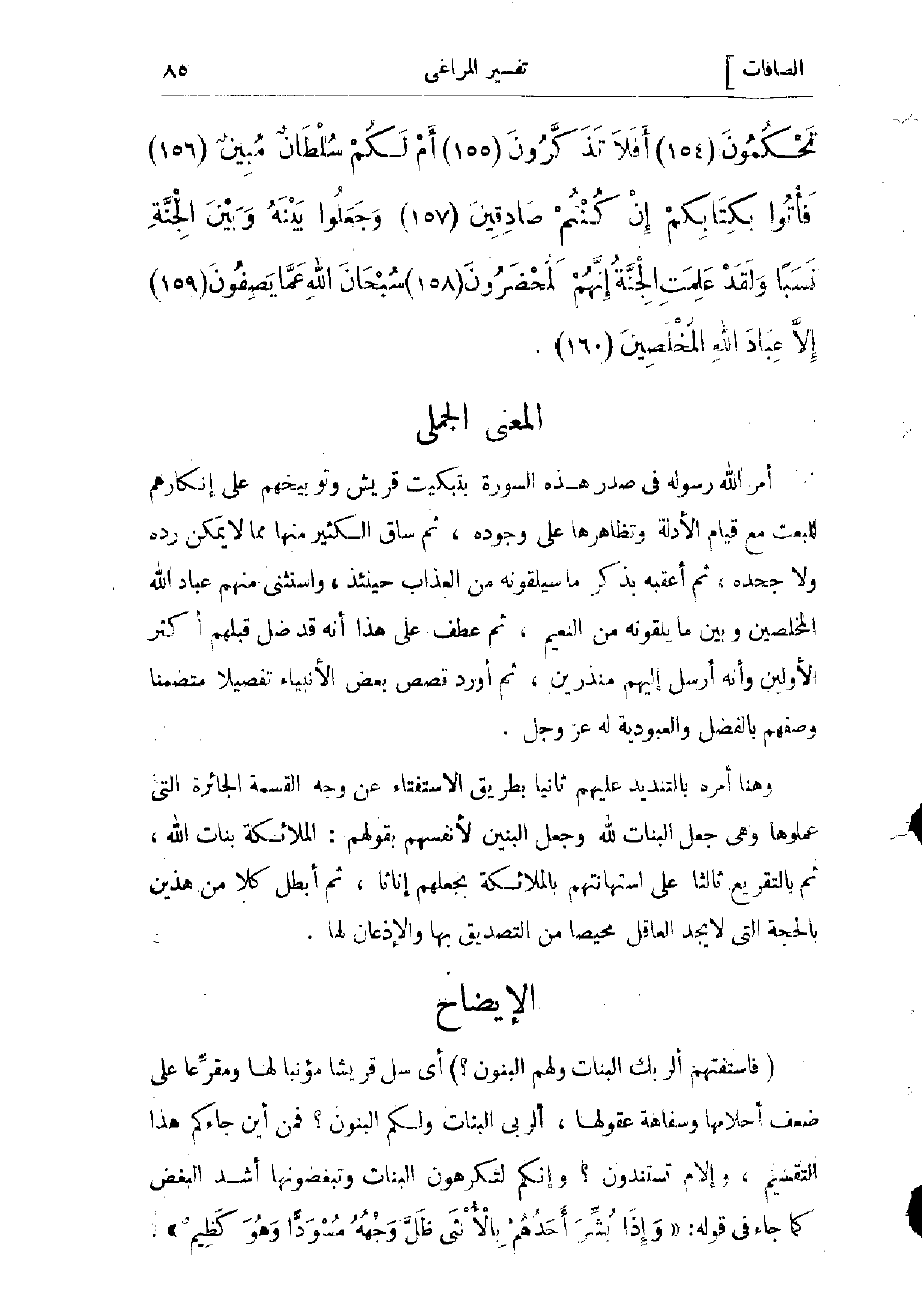 الصافات ] تفسير المراغى ٨٥
تَحْكُمُونَ (١٥٤) أَفَلَا تَذَكَّرُونَ (١٥٥) أَمْ لَكُمْ سُلْطَانٌ مُبِينٌ (١٥٦)
فَأْتُوا بِكِتَابِكُمْ إِنْ كُنْتُمْ صَادِقِينَ (١٥٧) وَجَعَلُوا بَيْنَهُ وَبَيْنَ الْجِنَّةِ
نَسَبًا وَلَقَدْ عَلِمَتِ الْجِنَّةُ إِنَّهُمْ لَمُحْضَرُونَ (١٥٨) سُبْحَانَ اللهِ عَمَّا يَصِفُونَ (١٥٩)
إِلَّا عِبَادَ اللهِ الْمُخْلَصِينَ (١٦٠) .
المعنى الجملى
أمر الله رسوله فى صدر هذه السورة بتبكيت قريش وتوبيخهم على إنكارهم
للبعث مع قيام الأدلة وتظاهرها على وجوده ، ثم ساق الكثير منها مما لا يمكن رده
ولا جحده ، ثم أعقبه بذكر ما سيلقونه من العذاب حينئذ ، واستثنى منهم عباد الله
المخلصين وبين ما يلقونه من النعيم ، ثم عطف على هذا أنه قد ضل قبلهم أكثر
الأولين وأنه أرسل إليهم منذرين ، ثم أورد قصص بعض الأنبياء تفصيلا متضمنا
وصفهم بالفضل والعبودية له عز وجل .
وهنا أمره بالتنديد عليهم ثانيا بطريق الاستفتاء عن وجه القسمة الجائرة التى
عملوها وهى جعل البنات لله وجعل البنين لأنفسهم بقولهم : الملائكة بنات الله ،
ثم بالتقريع ثالثا على استهانتهم بالملائكة بجعلهم إناثا ، ثم أبطل كلا من هذين
بالحجة التى لا يجد العاقل محيصا من التصديق بها والإذعان لها .
الإيضاح
( فاستفتهم ألربك البنات ولهم البنون ؟ ) أى سل قريشا مؤنبا لها ومقرِّعا على
ضعف أحلامها وسفاهة عقولها ، ألربى البنات ولكم البنون ؟ فمن أين جاءكم هذا
التقسيم ، وإلام تستندون ؟ وإنكم لتكرهون البنات وتبغضونها أشد البغض
كما جاء فى قوله : « وَإِذَا بُشِّرَ أَحَدُهُمْ بِالْأُنْثَى ظَلَّ وَجْهُهُ مُسْوَدًّا وَهُوَ كَظِيمٌ » .